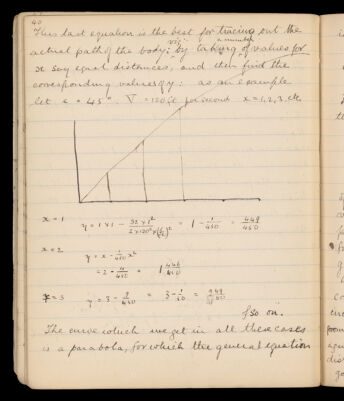 40
This last equation is the best for tracing out the
actual path of the body: viz: by taking a number of values for
x say equal distances, and then find the
corresponding values of y: as an example
let e = 45°. V = 120 ft per second x = 1, 2, 3, etc
x = 1 y = 1 x 1 - 32 x 1² / 2 x 120² x (1/√2)² = 1 - 1/450 = 449/450
x = 2 y = x - 1/450 x²
= 2 - 4/450 = 1 446/450
x = 3 y = 3 - 9/450 = 3 - 1/50 =
& so on.
The curve which we get in all these cases
is a parabola, for which the general equation